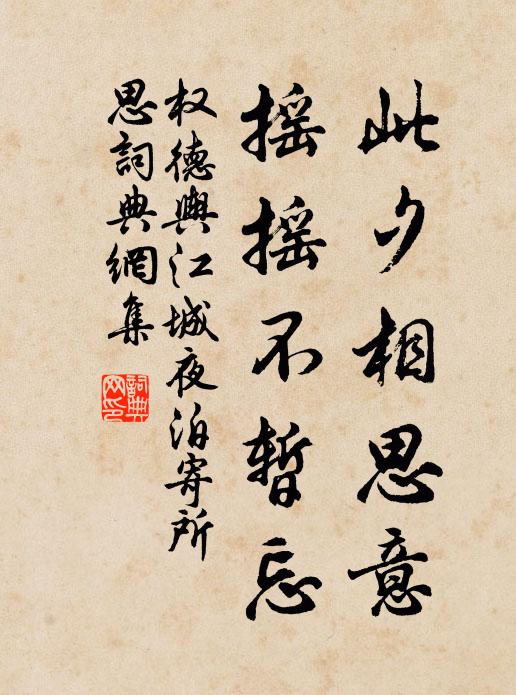 此夕相思意
摇摇不暫忘
权德輿江城夜泊寄所
思詞典網集
詞典
网印